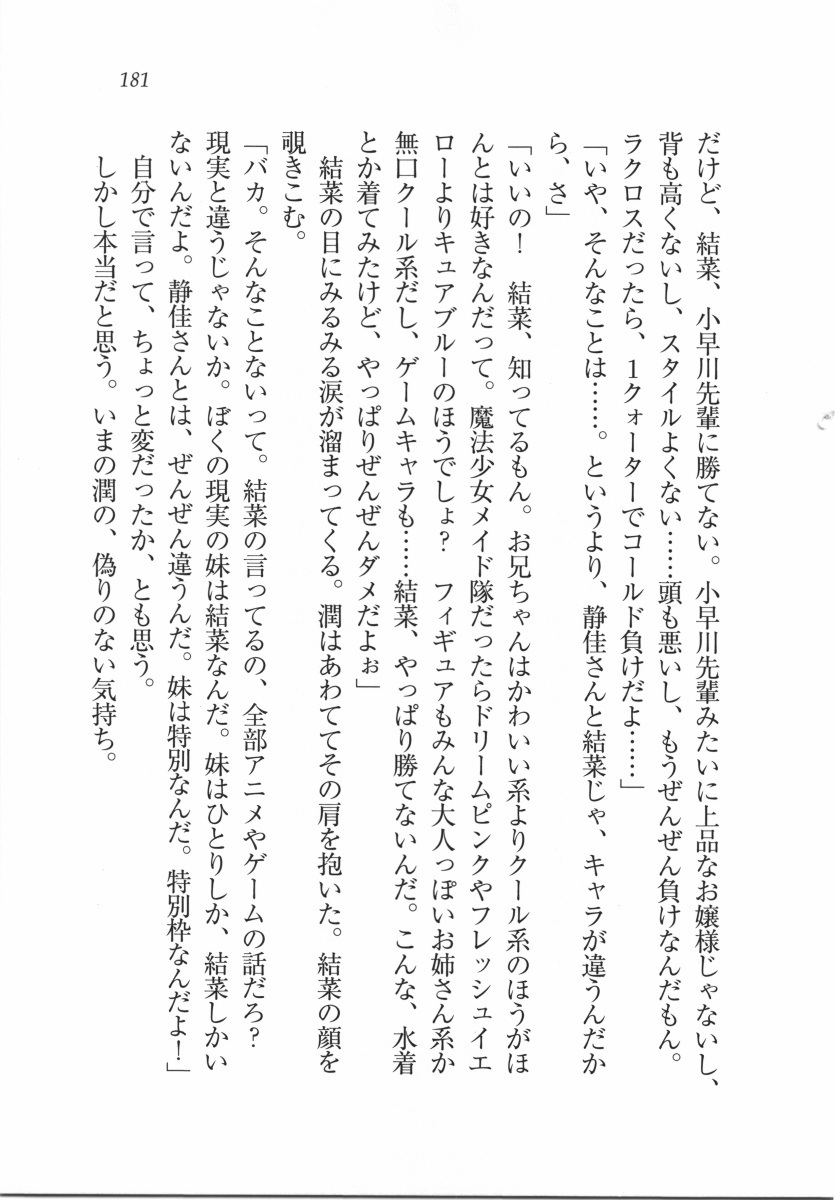 181
だけど、結菜、小早川先輩に勝てない。小早川先輩みたいに上品なお嬢様じゃないし、
背も高くないし、スタイルよくない……頭も悪いし、もうぜんぜん負けなんだもん。
ラクロスだったら、1クォーターでコールド負けだよ……」
「いや、そんなことは……。というより、静佳さんと結菜じゃ、キャラが違うんだか
ら、さ」
「いいの！　結菜、知ってるもん。お兄ちゃんはかわいい系よりクール系のほうがほ
んとは好きなんだって。魔法少女メイド隊だったらドリームピンクやフレッシュイエ
ローよりキュアブルーのほうでしょ？　フィギュアもみんな大人っぽいお姉さん系か
無口クール系だし、ゲームキャラも……結菜、やっぱり勝てないんだ。こんな、水着
とか着てみたけど、やっぱりぜんぜんダメだよぉ」
　結菜の目にみるみる涙が溜まってくる。潤はあわててその肩を抱いた。結菜の顔を
覗きこむ。
「バカ。そんなことないって。結菜の言ってるの、全部アニメやゲームの話だろ？
現実と違うじゃないか。ぼくの現実の妹は結菜なんだ。妹はひとりしか、結菜しかい
ないんだよ。静佳さんとは、ぜんぜん違うんだ。妹は特別なんだ。特別枠なんだよ！」
　自分で言って、ちょっと変だったか、とも思う。
　しかし本当だと思う。いまの潤の、偽りのない気持ち。